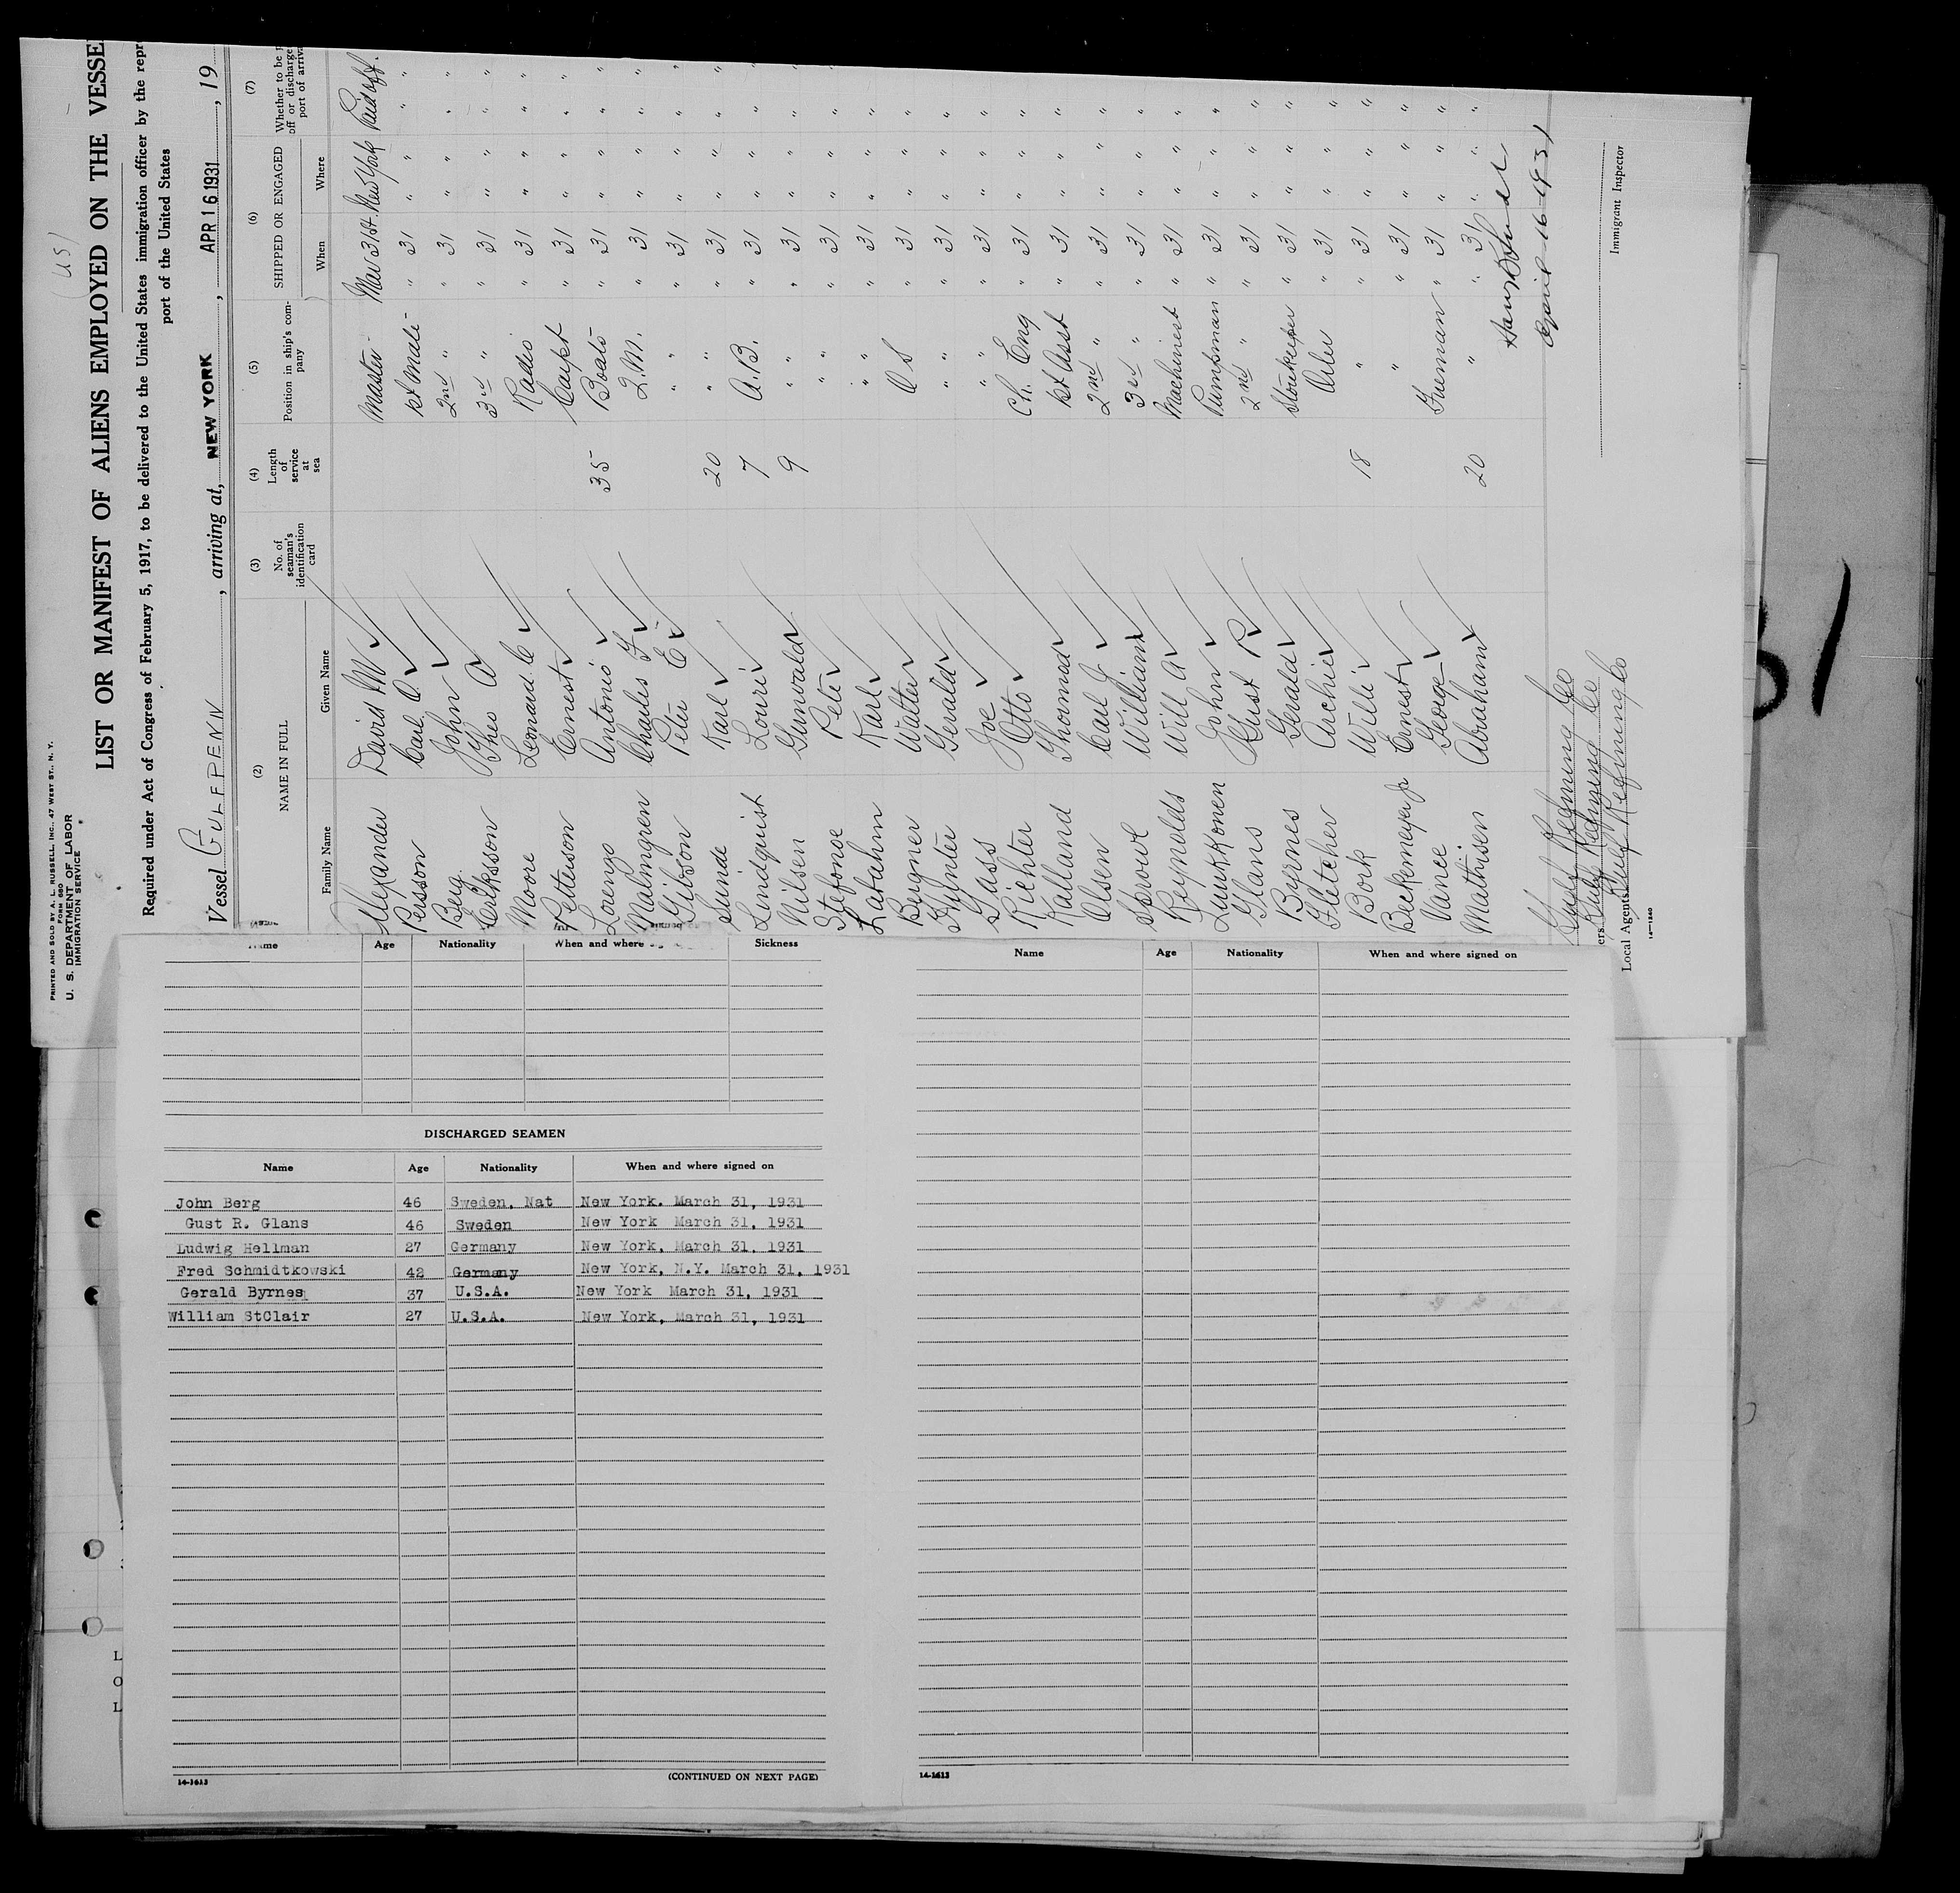 PRINTED AND SOLD BY A. L. RUSSELL, INC., 47 WEST ST., N. Y.
FORM 680
U. S. DEPARTMENT OF LABOR
IMMIGRATION SERVICE
(US)
LIST OR MANIFEST OF ALIENS EMPLOYED ON THE VESSE
Required under Act of Congress of February 5, 1917, to be delivered to the United States immigration officer by the repr
port of the United States
Vessel GULFPENN, arriving at, NEW YORK, APR 16 1931, 19
(2) (3) (4) (5) (6) (7)
NAME IN FULL No. of seaman's identification card Length of service at sea Position in ship's company SHIPPED OR ENGAGED Whether to be off or discharge port of arriva
Family Name Given Name When Where
Alexander David M Master Mar 31st. New York Paid off.
Persson Carl O 1st Mate " 31 " " " "
Berg John 2nd " " 31 " " " "
Eriksson Theo A 3rd " " 31 " " " "
Moore Leonard C Radio " 31 " " " "
Petterson Ernest Carpt " 31 " " " "
Lorenzo Antonio 35 Boats " 31 " " " "
Malmgren Charles F Q.M. " 31 " " " "
Gibson Peter E " " " 31 " " " "
Sunde Karl 20 " " " 31 " " " "
Lindquist Louri 7 A.B. " 31 " " " "
Nilsen Gunvald 9 " " " 31 " " " "
Stefonoe Pete " " " 31 " " " "
Labahn Karl " " " 31 " " " "
Bergner Walter O S " 31 " " " "
Gynter Gerald " " " 31 " " " "
Gass Joe " " " 31 " " " "
Richter Otto Ch. Eng " 31 " " " "
Kalland Thomas 1st Asst " 31 " " " "
Olsen Carl J 2nd " " 31 " " " "
Sprowl William 3rd " " 31 " " " "
Reynolds Will A Machinest " 31 " " " "
Luukkonen John Pumpman " 31 " " " "
Glans Gust R 2nd " " 31 " " " "
Byrnes Gerald Storekeeper " 31 " " " "
Fletcher Archie Oiler " 31 " " " "
Bork Willi 18 " " 31 " " " "
Beckemeyer Jr Ernest " " 31 " " " "
Vance George Fireman " 31 " " " "
Mathisen Abraham 20 " " 31 " " " "
April 16-1931
Gulf Refining Co
Gulf Refining Co
ers
Local Agents Gulf Refining Co
Immigrant Inspector
14—1240
Name Age Nationality When and where Sickness
DISCHARGED SEAMEN
Name Age Nationality When and where signed on
John Berg 46 Sweden. Nat New York. March 31, 1931
Gust R. Glans 46 Sweden New York March 31, 1931
Ludwig Hellman 27 Germany New York, March 31, 1931
Fred Schmidtkowski 42 Germany New York, N.Y. March 31, 1931
Gerald Byrnes 37 U.S.A. New York March 31, 1931
William StClair 27 U.S.A. New York, March 31, 1931
14-1613
(CONTINUED ON NEXT PAGE)
Name Age Nationality When and where signed on
14-1613
L
O
L